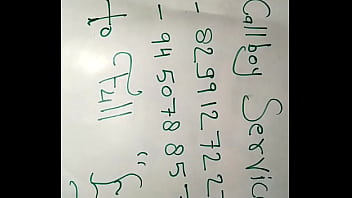 Call boy Servic
- 829912722
- 94507885
to Full